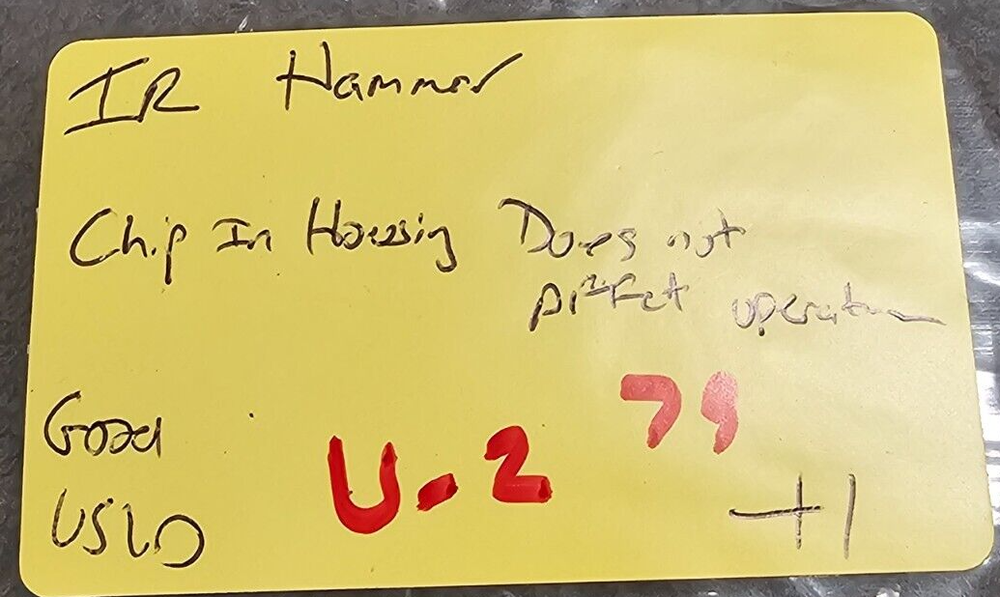 IR Hammer
Chip In Housing Does not
operation
Good
79
U-2
USED
+1